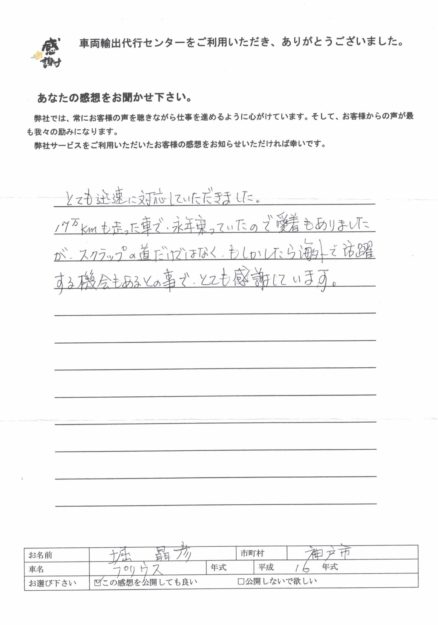 感謝
車両輸出代行センターをご利用いただき、ありがとうございました。
あなたの感想をお聞かせ下さい。
弊社では、常にお客様の声を聴きながら仕事を進めるように心がけています。そして、お客様からの声が最
も我々の励みになります。
弊社サービスをご利用いただいたお客様の感想をお知らせいただければ幸いです。
とても迅速に対応していただきました。
17万kmも走った車で、永年乗っていたので愛着もありました
が、スクラップの道だけではなく、もしかしたら海外で活躍
する機会もあるとの事で、とても感謝しています。
お名前 堀 晶彦 市町村 神戸市
車名 プリウス 年式 平成 16 年式
お選び下さい ☑この感想を公開しても良い □公開しないで欲しい